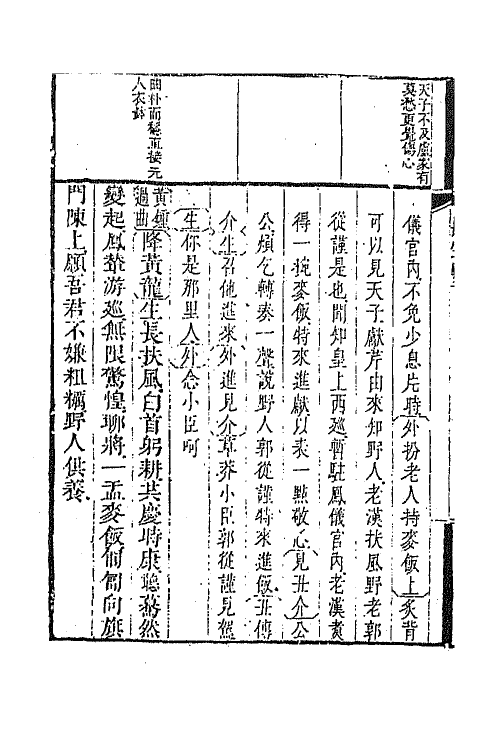 天子不及盧家有
莫愁更覺傷心
曲朴而穩直接元
人衣鉢
儀宫內不免少息片時外扮老人持麥飯上炙背
可以見天子獻芹由來知野人老漢扶風野老郭
從謹是也聞知皇上西廵暫駐鳳儀宫內老漢煑
得一椀麥飯特來進獻以表一點敬心見丑介公
公煩乞轉奏一聲說野人郭從謹特來進飯丑傳
介生召他進來外進見介草莽小臣郭從謹見駕
生你是那里人外念小臣呵
黃鍾過曲降黃龍生長扶風白首躬耕共慶時康聽驀然
變起鳳輦游廵無限驚惶聊將一盂麥飯匍匐向旗
門陳上願吾君不嫌粗糲野人供養